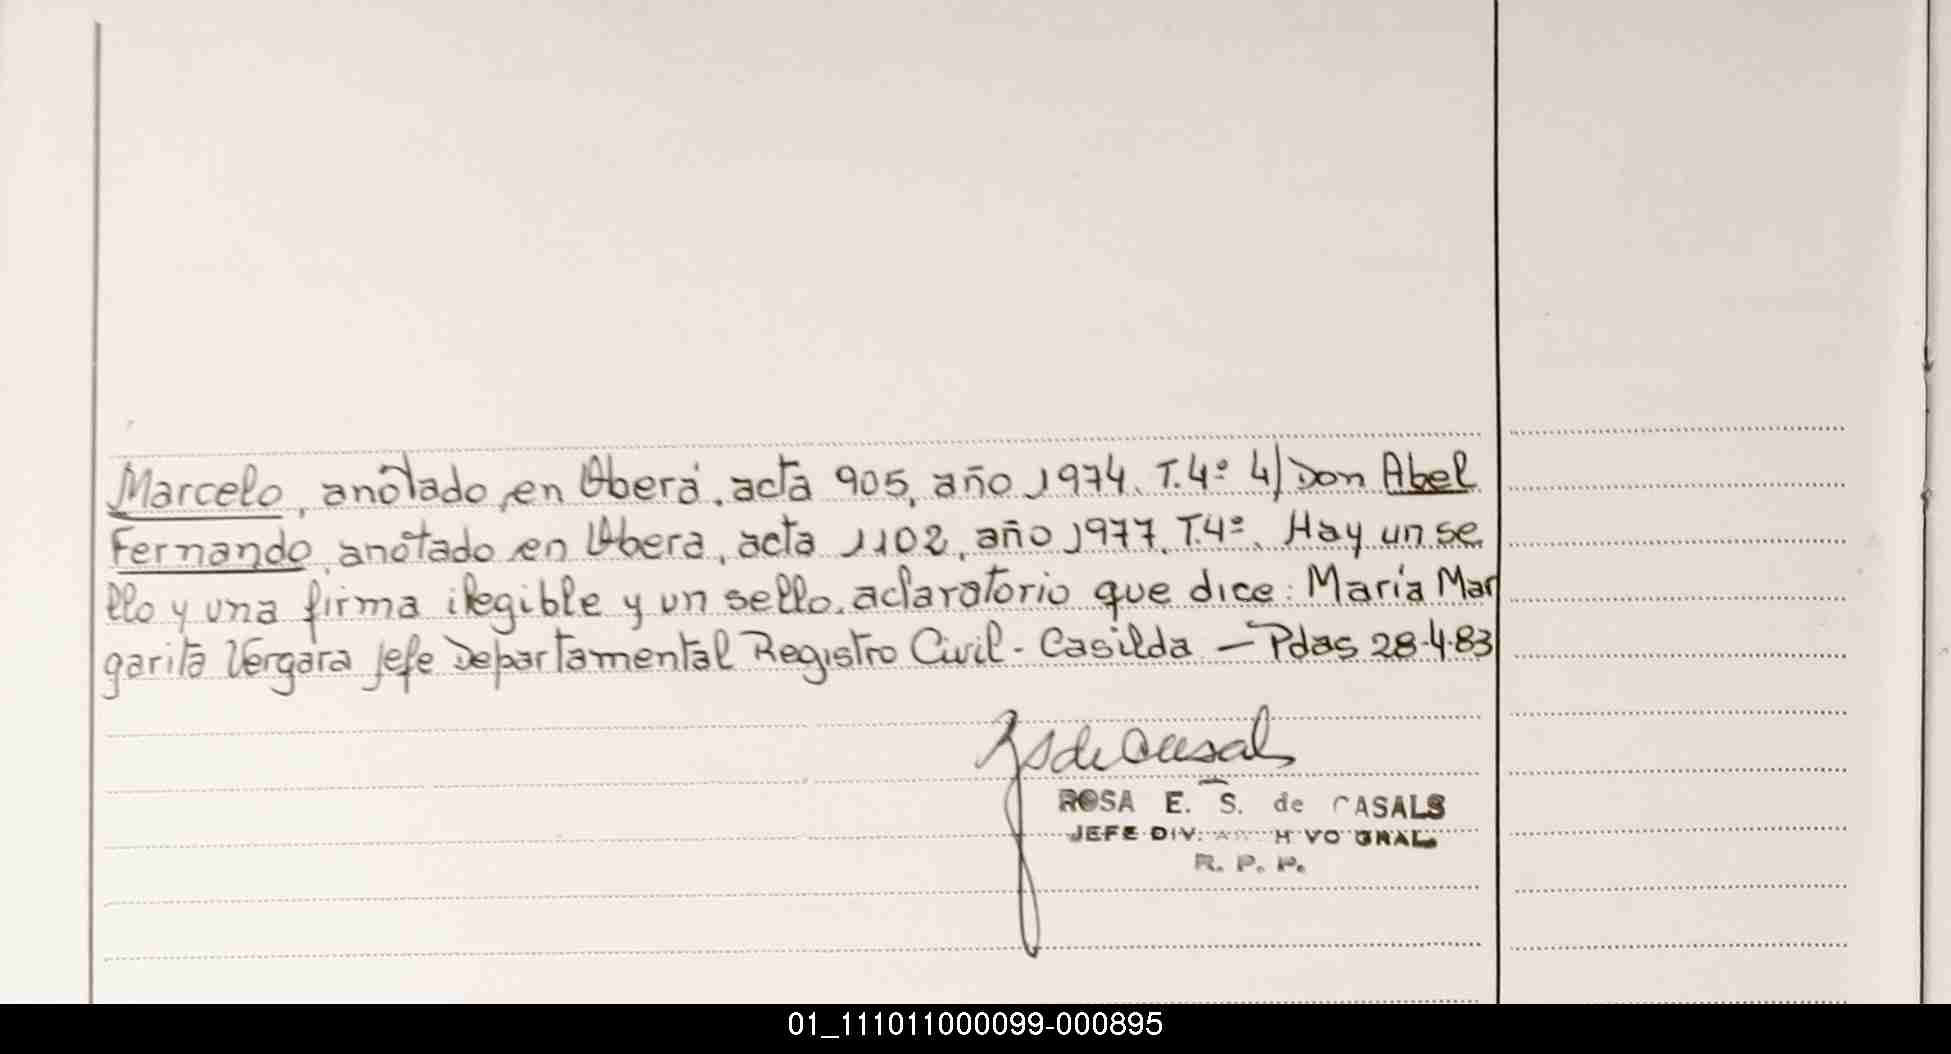 Marcelo, anotado en Oberá, acta 905, año 1974. T.4º 4) Don Abel
Fernando, anotado en Obera, acta 1102, año 1977. T.4º. Hay un se
llo y una firma ilegible y un sello aclaratorio que dice: María Mar
garita Vergara Jefe Departamental Registro Civil - Casilda — Pdas 28-4-83
de Casals
ROSA E. S. de CASALS
JEFE DIV. ARCHIVO GRAL.
R. P. P.
01_111011000099-000895